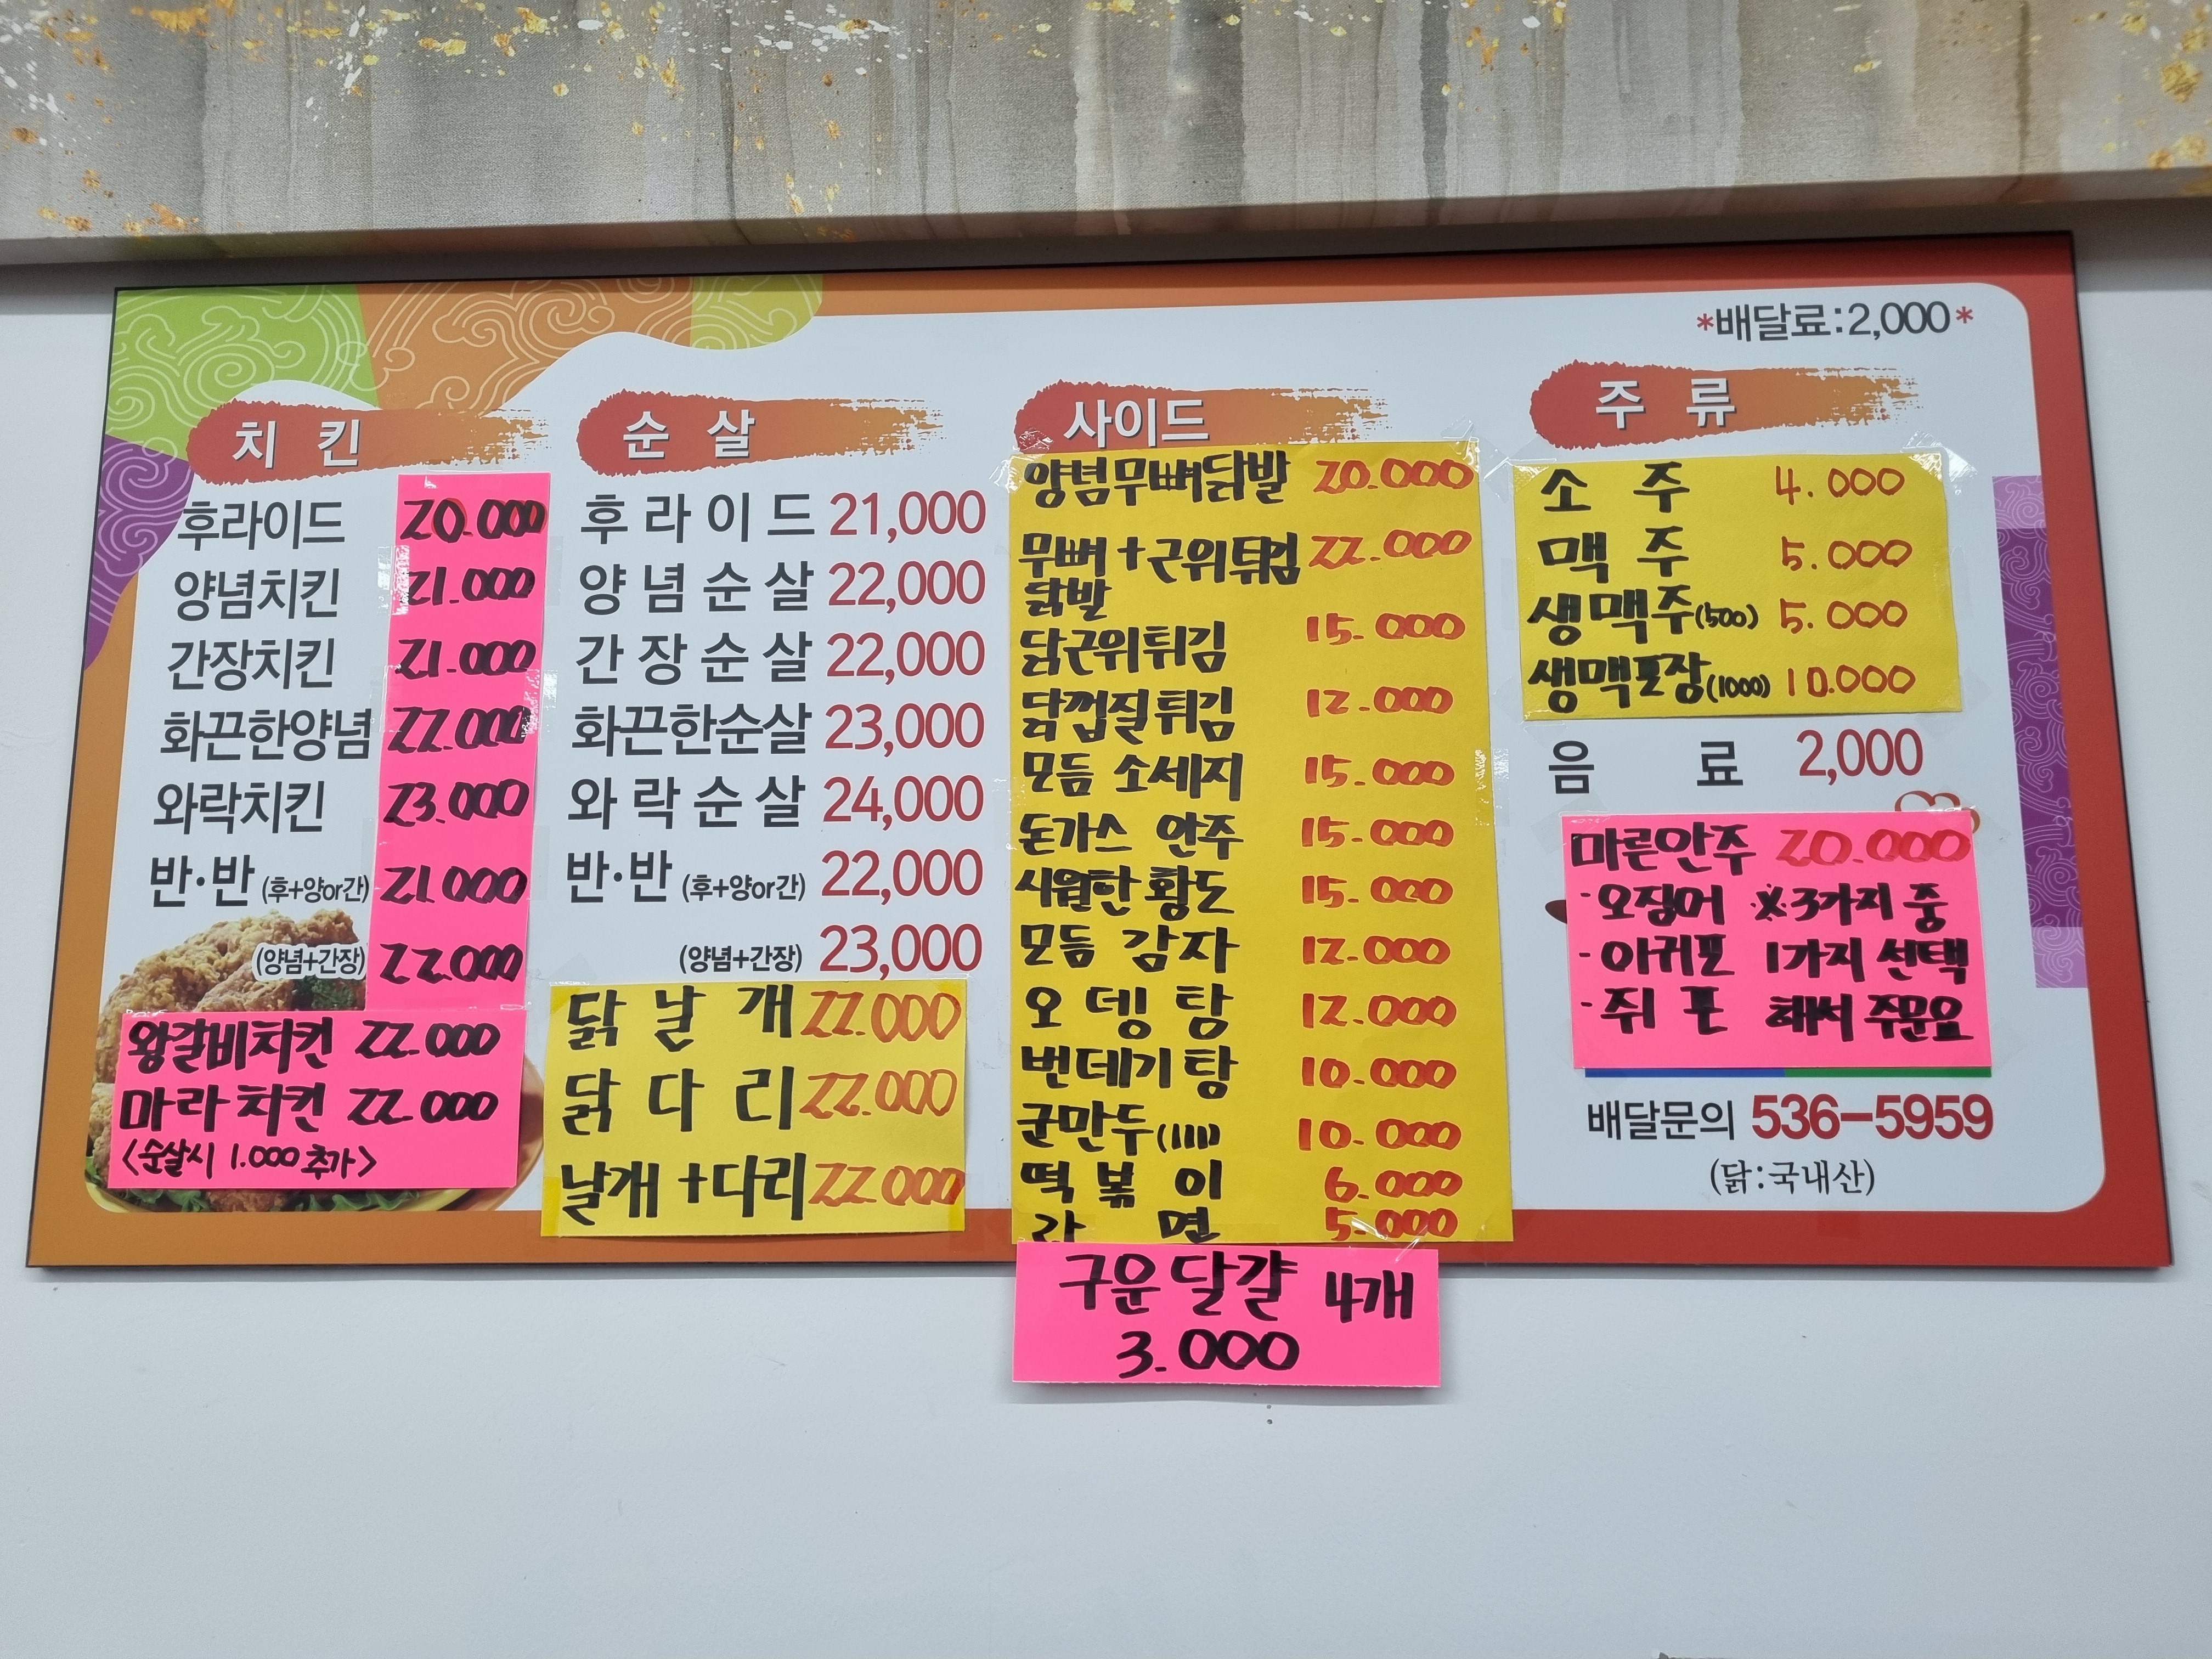 *배달료:2,000*
치 킨
후라이드 20.000
양념치킨 21.000
간장치킨 21.000
화끈한양념 22.000
와락치킨 23.000
반·반 (후+양or간) 21.000
(양념+간장) 22.000
왕갈비치킨 22.000
마라치킨 22.000
<순살시 1.000 추가>
순 살
후라이드 21,000
양념순살 22,000
간장순살 22,000
화끈한순살 23,000
와락순살 24,000
반·반 (후+양or간) 22,000
(양념+간장) 23,000
닭날개 22.000
닭다리 22.000
날개+다리 22.000
사이드
양념무뼈닭발 20.000
무뼈+근위튀김 22.000
닭발
닭근위튀김 15.000
닭껍질튀김 12.000
모듬 소세지 15.000
돈가스 안주 15.000
시원한 황도 15.000
모듬 감자 12.000
오뎅탕 12.000
번데기탕 10.000
군만두(10개) 10.000
떡볶이 6.000
라면 5.000
구운달걀 4개
3.000
주 류
소주 4.000
맥주 5.000
생맥주(500) 5.000
생맥포장(1000) 10.000
음료 2,000
마른안주 20.000
·오징어 ※3가지 중
-아귀포 1가지 선택
·쥐포 해서 주문요
배달문의 536-5959
(닭:국내산)